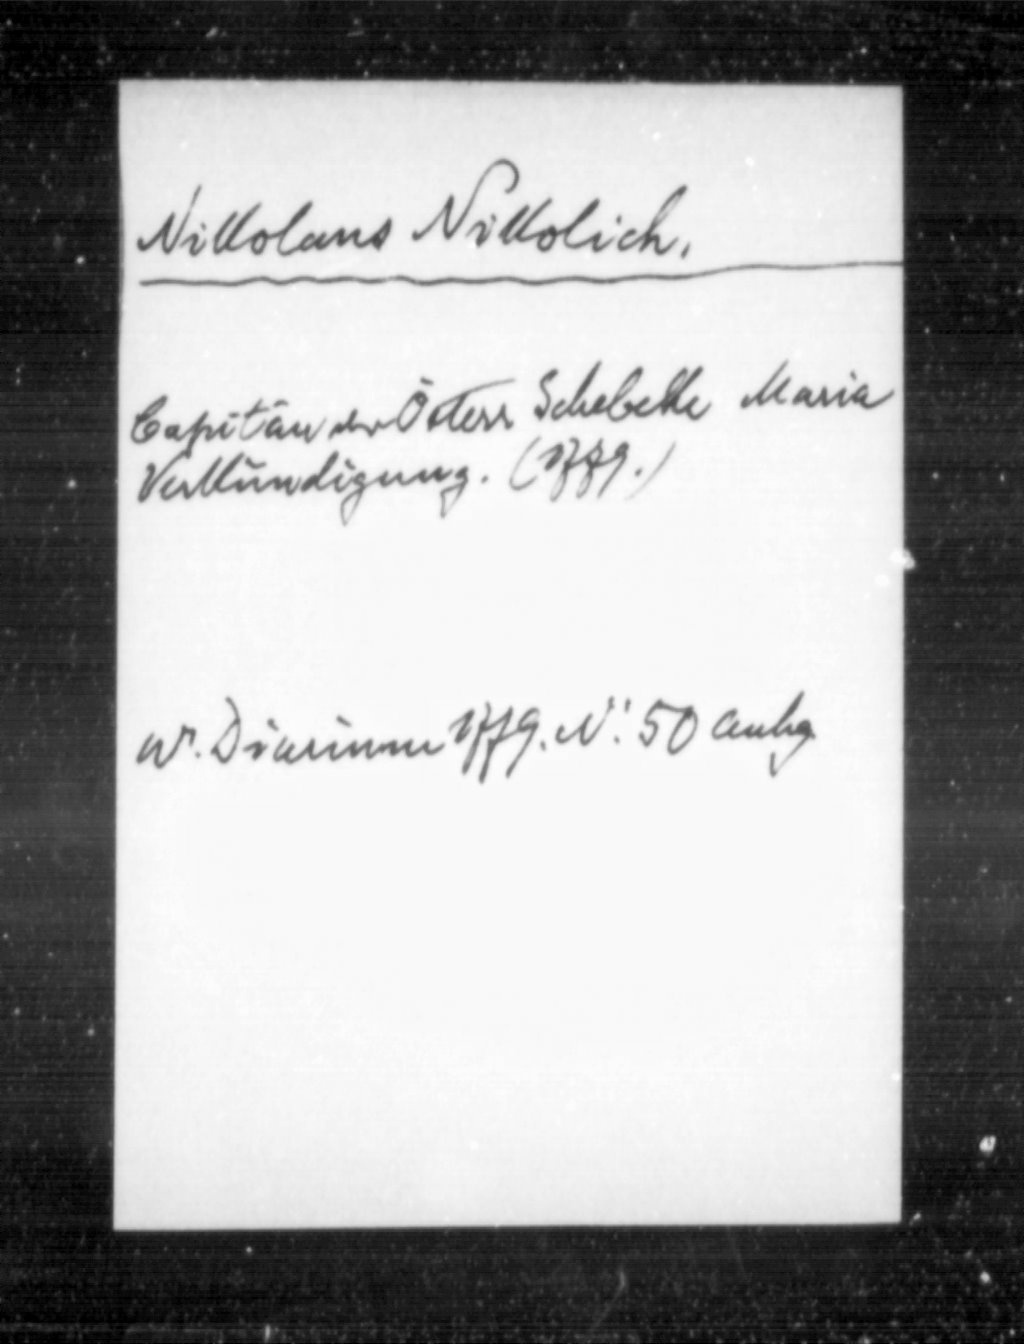 Nikkolaus Nikkolich.
Capitän der Österr Schebekke Maria
Verkündigung. (1779.)
Wr. Diarium 1779. N: 50 anhg